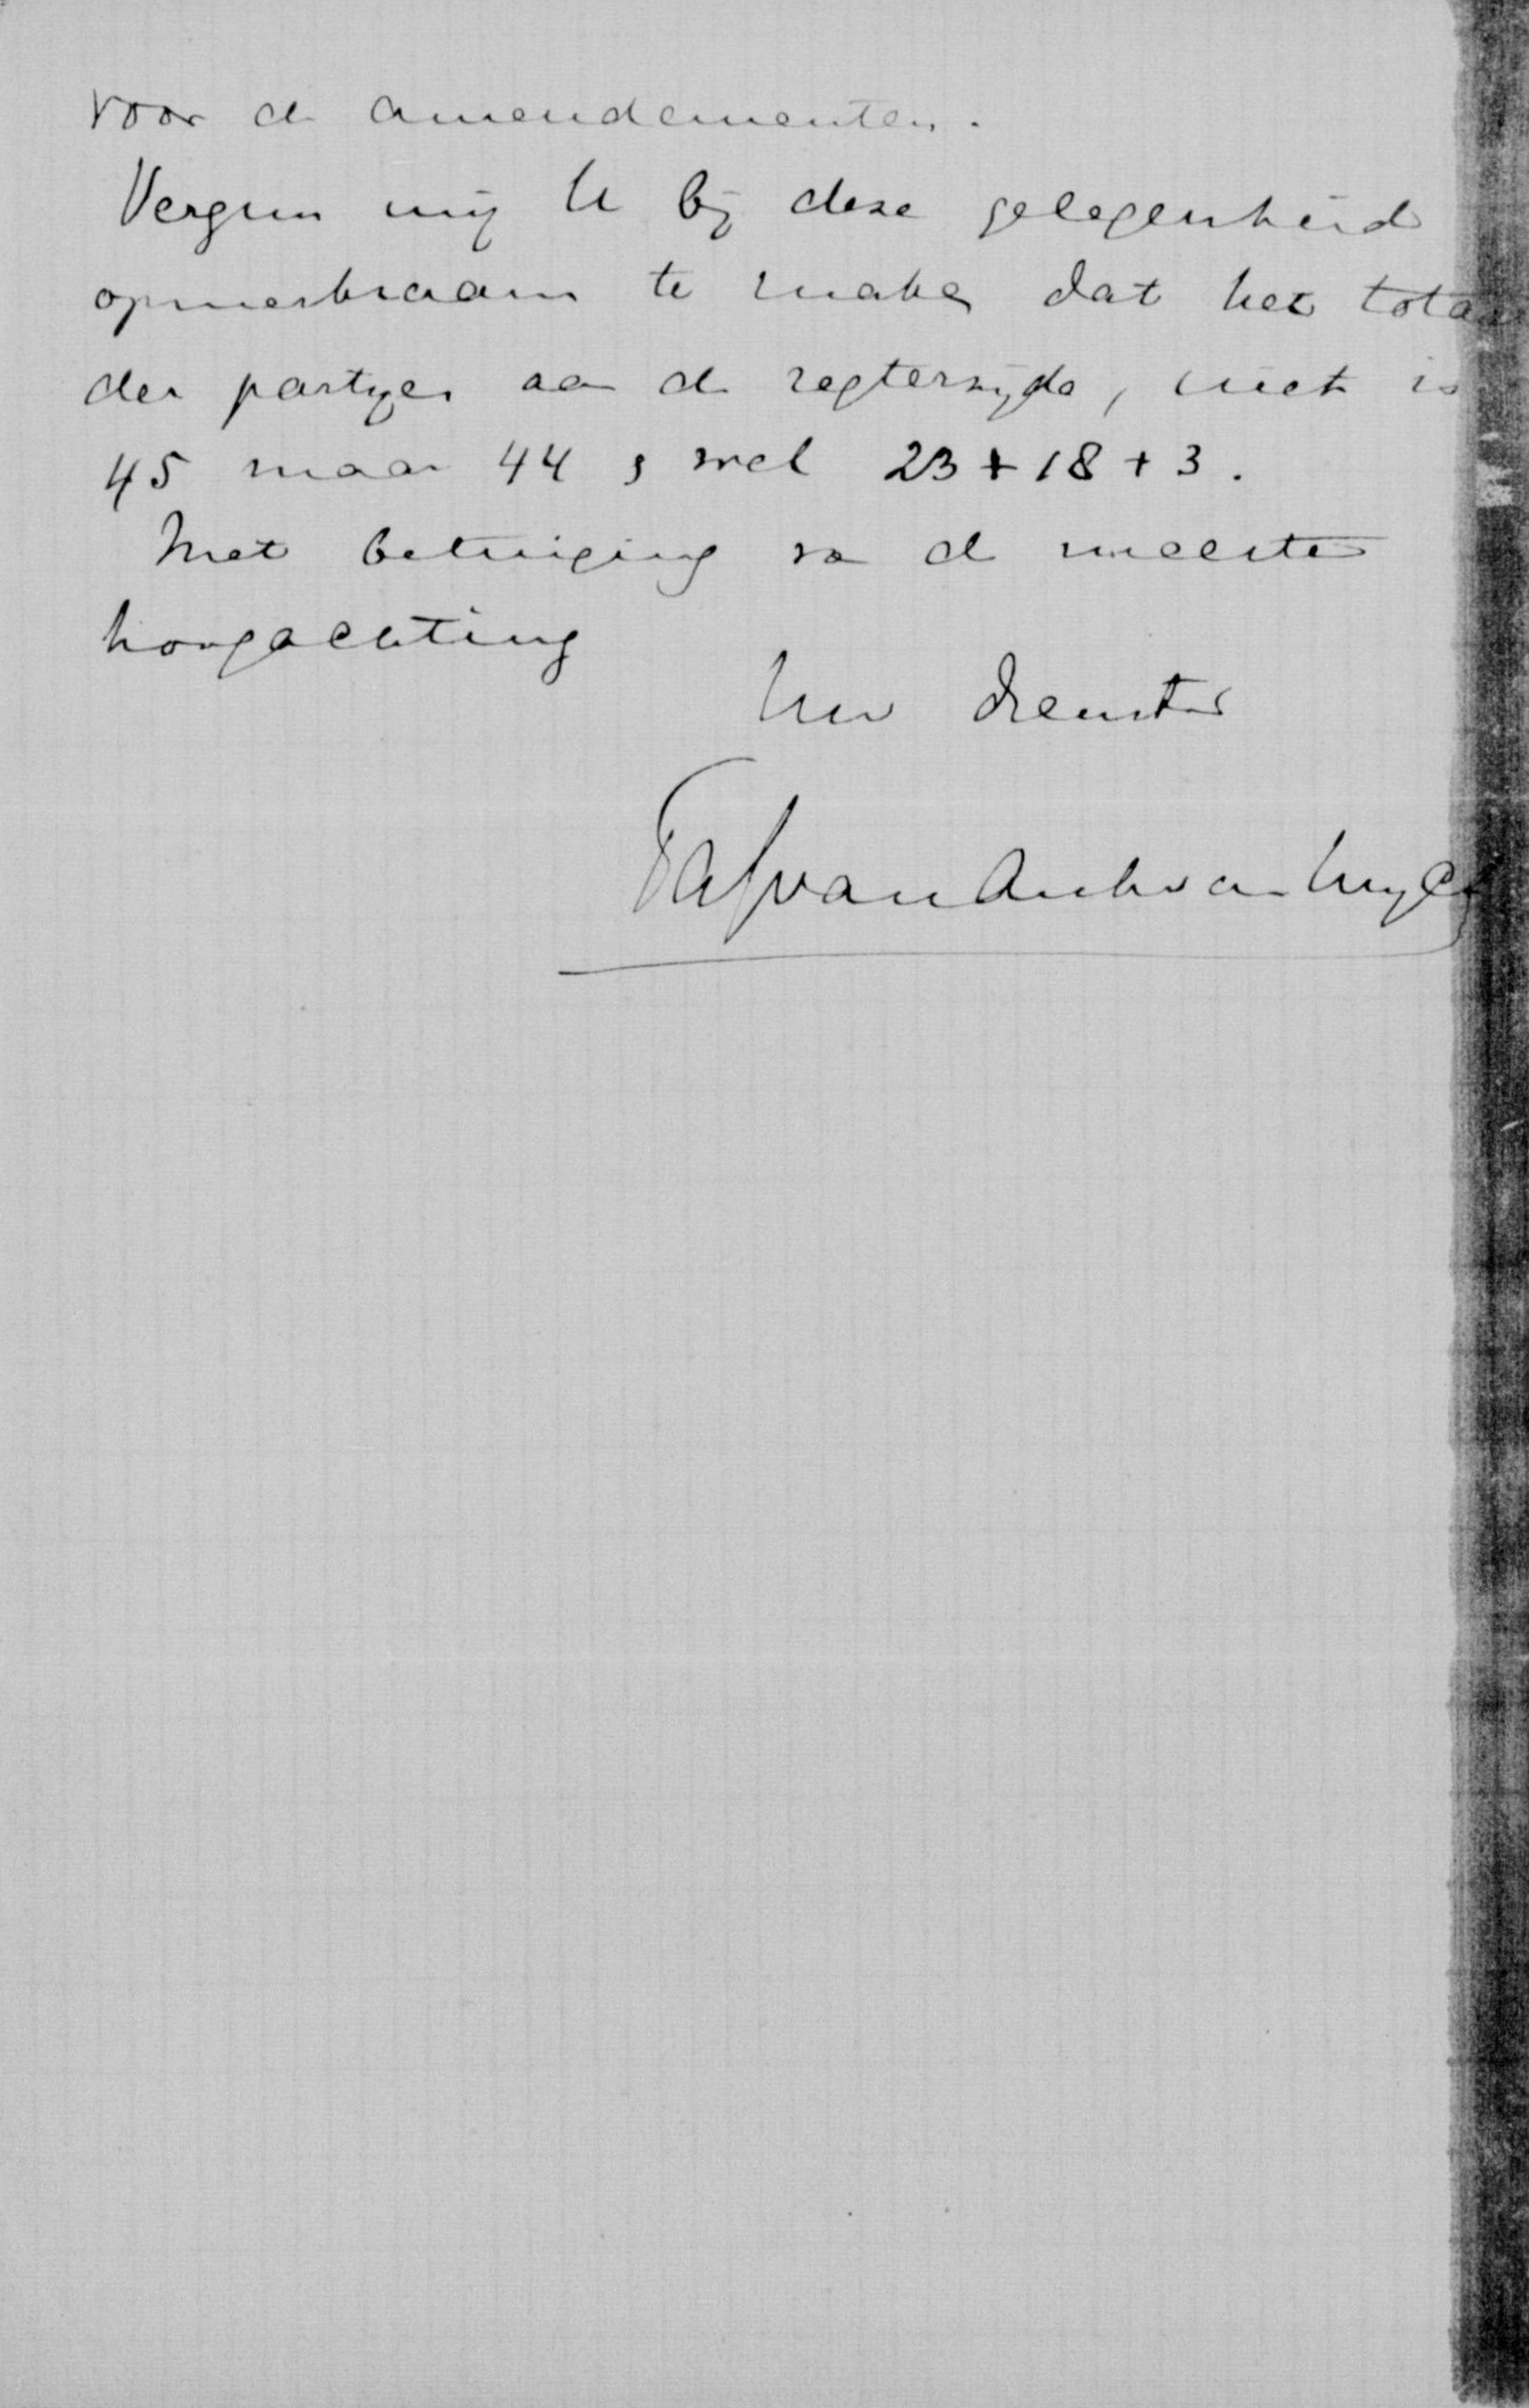 voor de amendementen.
Vergun mij U bij deze gelegenheid
opmerkzaam te maken dat het totaal
der partijen aan de regterzijde, niet is
45 maar 44 , wel 23 + 18 + 3.
Met betuiging van de meeste
hoogachting
Uw dienstv
van Asch van Wijck